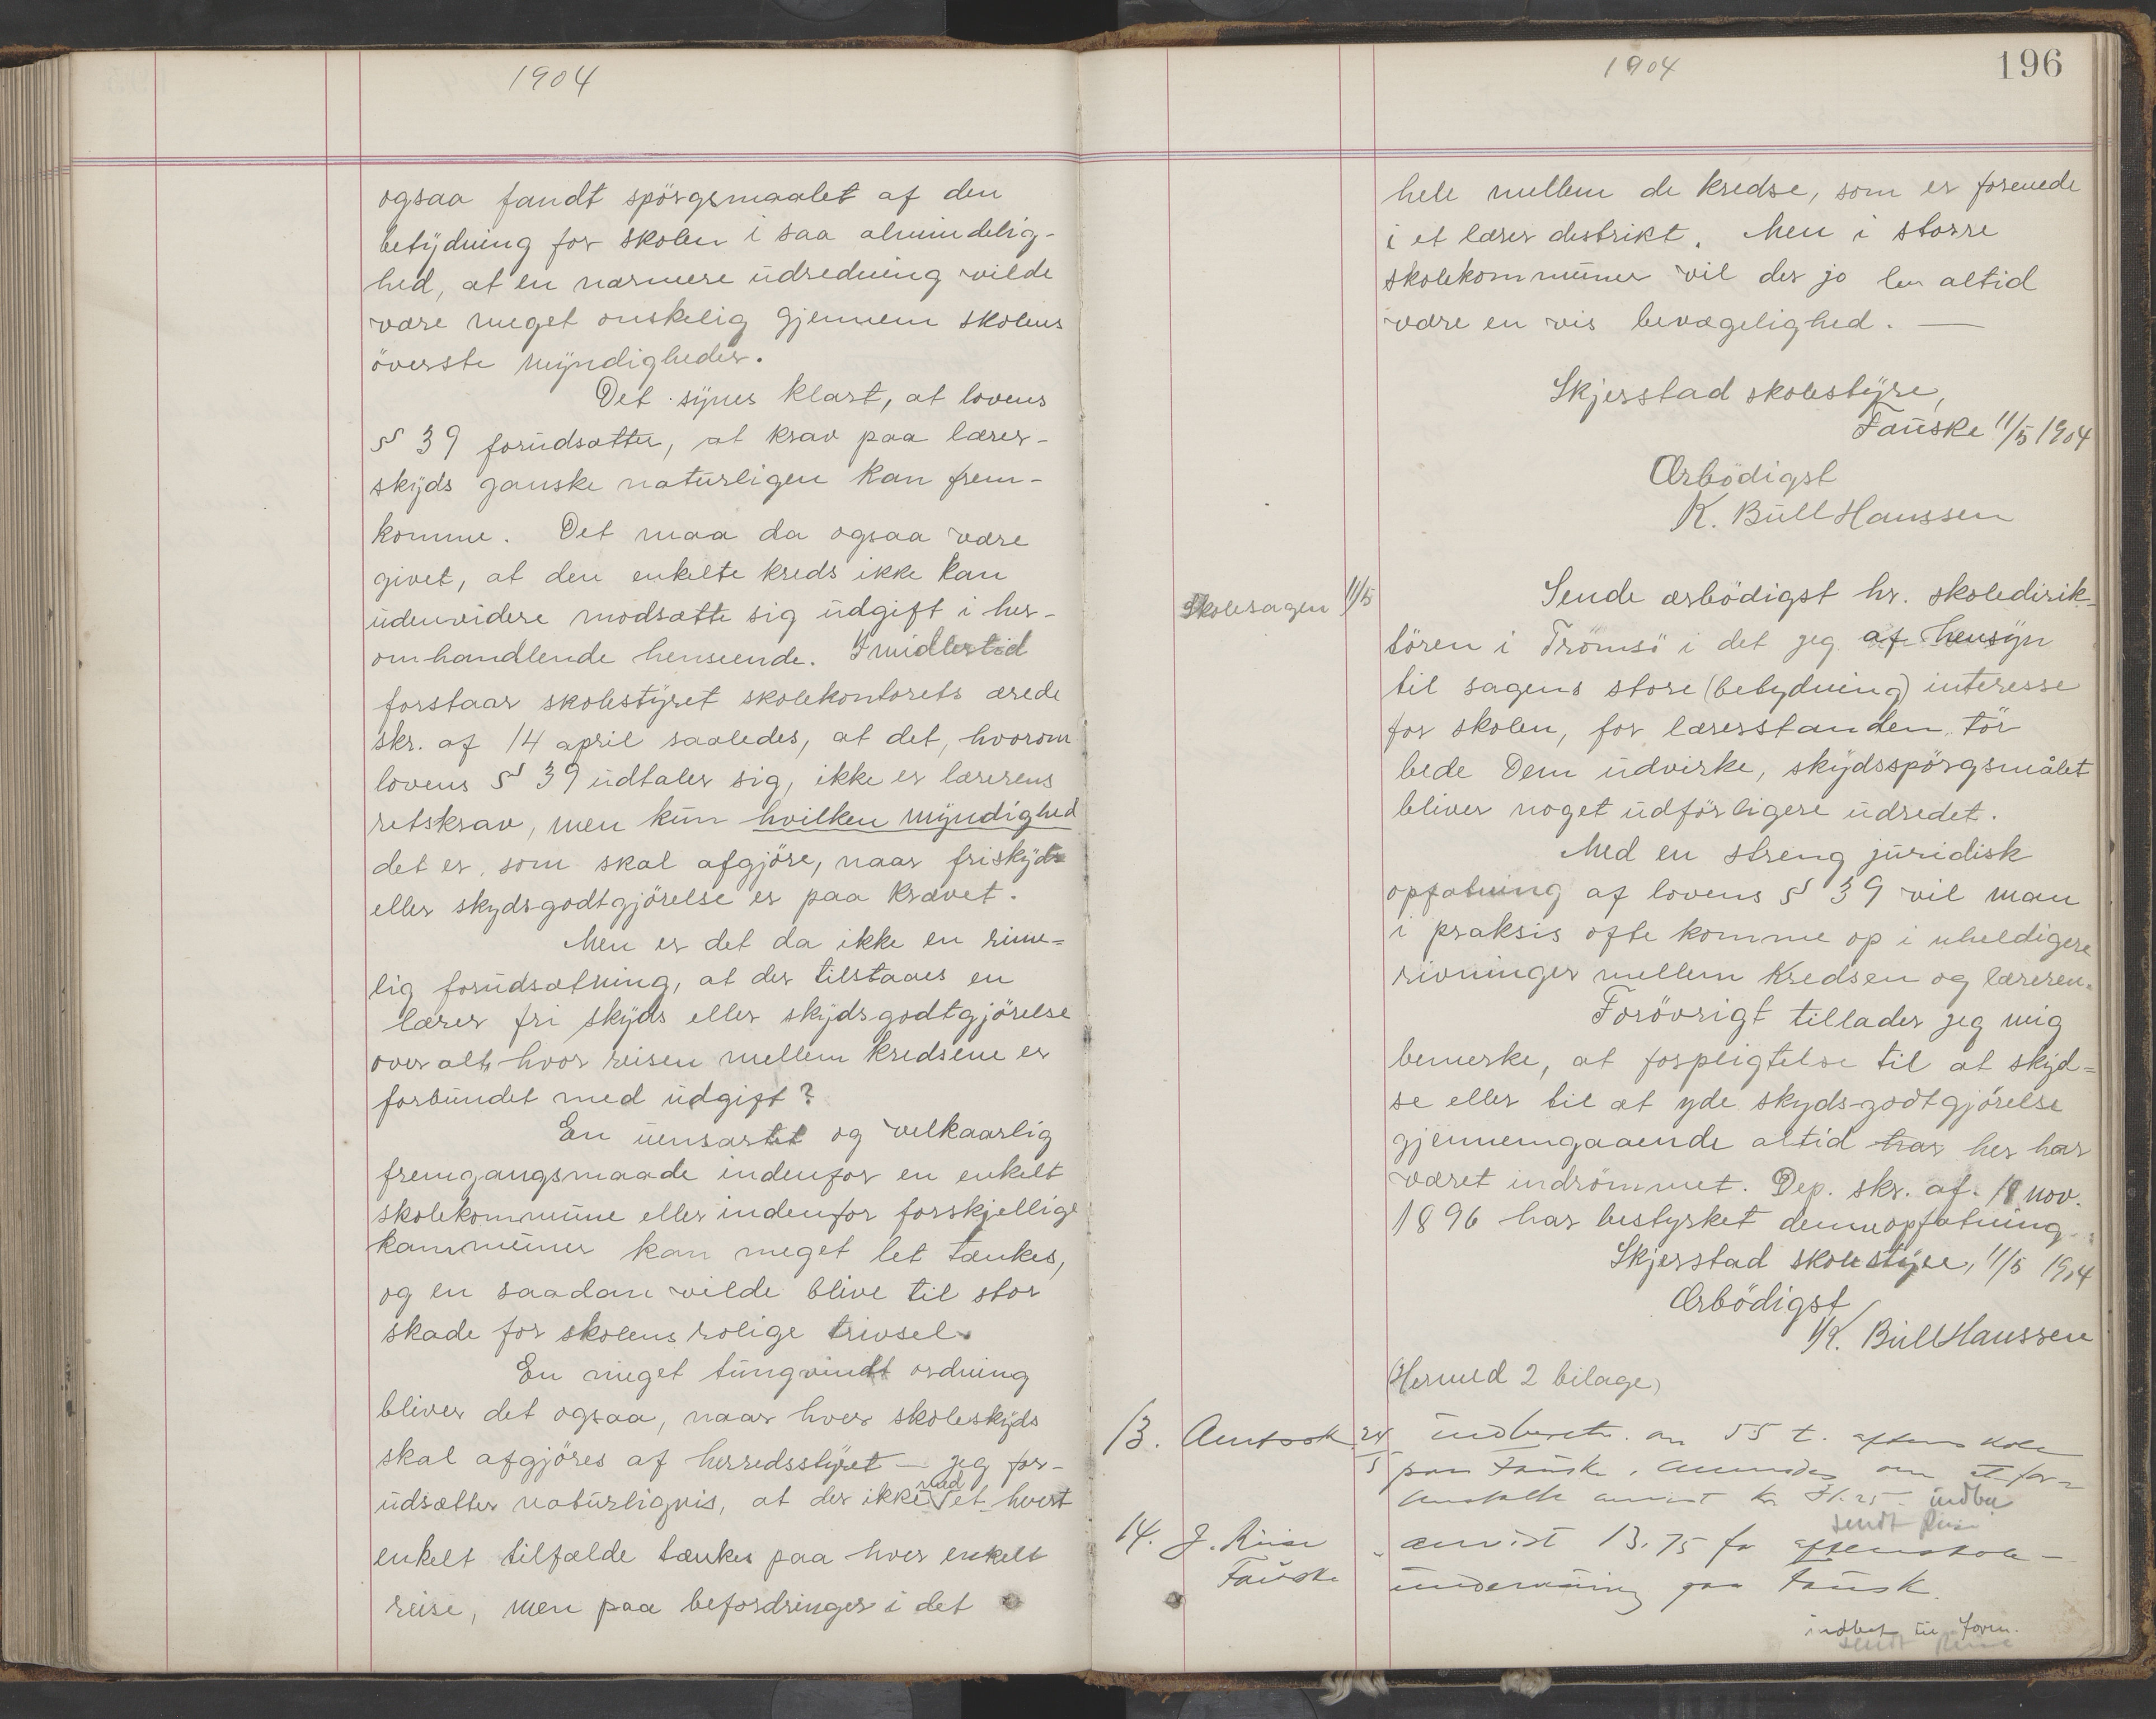 1904
ogsaa fandt spörgsmaalet af den
betydning for skolen i saa almindelig-
hed, at en nærmere udredning vilde
være meget onskelig gjennem skolens
överste myndigheder.
Det synes klart, at lovens
§ 39 forudsætter, at krav paa lærer-
skyds ganske naturligen kan frem-
komme. Det maa da ogsaa være
givet, at den enkelte kreds ikke kan
udenvidere modsætte sig udgift i her-
omhandlende henseende. Imidlertid
forstaar skolestyret skolekontorets ærede
skr. af 14 april saaledes, at det, hvorom
lovens § 39 udtaler sig, ikke er lærerens
retskrav, men kun hvilken myndighed
det er, som skal afgjöre, naar friskyds
eller skydsgodtgjörelse er paa krævet.
Men er det da ikke en rime-
lig forudsætning, at der tilstaaes en
lærer fri skyds eller skydsgodtgjörelse
over alt, hvor reisen mellem kredsene er
forbundet med udgift?
En uensartet og vilkaarlig
fremgangsmaade indenfor en enkelt
skolekommune eller indenfor forskjellige
kommuner kan meget let tænkes,
og en saadan vilde blive til stor
skade for skolens rolige trivsel.
En meget tungvindt ordning
bliver det ogsaa, naar hver skoleskyds
skal afgjöres af herredsstyret - jeg for-
udsætter naturligvis, at der ikke ved et hvert
enkelt tilfælde tænkes paa hver enkelt
reise, men paa befordringer i det
1904
196
hele mellem de kredse, som er forenede
i et lærer distrikt. Men i større
skolekommuner vil der jo altid
være en vis bevægelighed. —
Skjerstad skolestyre,
Fauske 11/5 1904
Ærbödigst
K. Bull Hanssen
Skolesagen 11/5
Sende ærbödigst hr. skoledirik-
tören i Trömsö i det jeg af hensyn
til sagens store (betydning) interesse
for skolen, for lærerstanden tör
bede Dem udvirke, skydsspörgsmålet
bliver noget udförligere udredet.
Med en streng juridisk
opfatning af lovens § 39 vil man
i praksis ofte komme op i uheldigere
rivninger mellem kredsen og læreren.
Forövrigt tillader jeg mig
bemerke, at forpligtelse til at skyd-
se eller til at yde skyds-godtgjörelse
gjennemgaaende altid har her har
været indrömmet. Dep. skr. af. 18 nov.
1896 har bestyrket denne opfatning.
Skjerstad skolestyre, 11/5 1904
Ærbödigst
K. Bull Hanssen
(Hermed 2 bilage)
13. Amtssk. 24/5 indberetn. om 55 t. aftenskole
paa Fauske. Anmodes om at faa
anvist kr
sendt
14. J. Riise anvist 13.75 for aftenskole-
Fauske undervisning paa Fausk.
sendt Riise